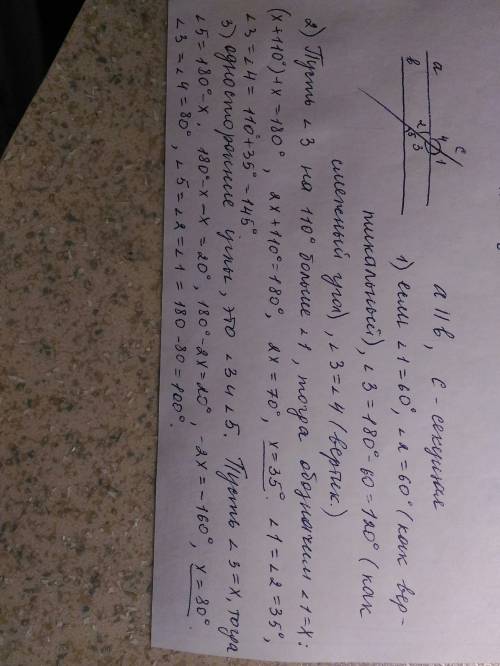 a
b
c
4
1
2
3
5
a || b, c - секущая
1) если ∠1=60°, ∠2=60° (как вер-
тикальный), ∠3=180°-60=120° (как
смежный угол), ∠3=∠4 (вертик.)
2) Пусть ∠3 на 110° больше ∠1, тогда обозначим ∠1=x:
(x+110°)+x=180°, 2x+110°=180°, 2x=70°, x=35°. ∠1=∠2=35°,
∠3=∠4=110°+35°=145°
3) односторонние углы, это ∠3 и ∠5. Пусть ∠3=x, тогда
∠5=180°-x. 180°-x-x=20°, 180°-2x=20°, -2x=-160°, x=80°.
∠3=∠4=80°, ∠5=∠2=∠1=180-80=100°.